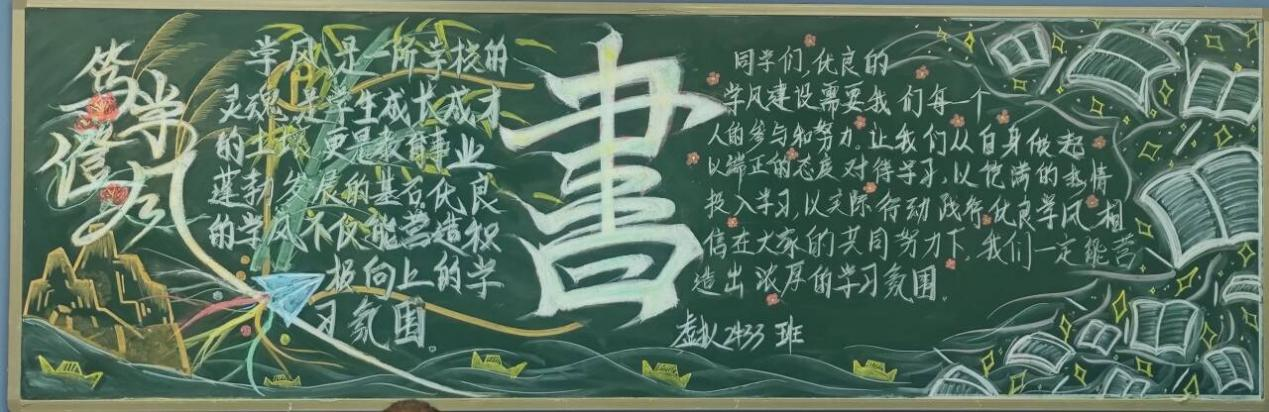 笃学
澄风
学风是一所学校的
灵魂,是学生成长成才
的土壤,更是教育事业
蓬勃发展的基石。优良
的学风不仅能营造积
极向上的学
习氛围。
書
同学们,优良的
学风建设需要我们每一个
人的参与和努力。让我们从自身做起
以端正的态度对待学习,以饱满的热情
投入学习,以实际行动践行优良学风,相
信在大家的共同努力下,我们一定能营
造出浓厚的学习氛围。
虚拟2433班